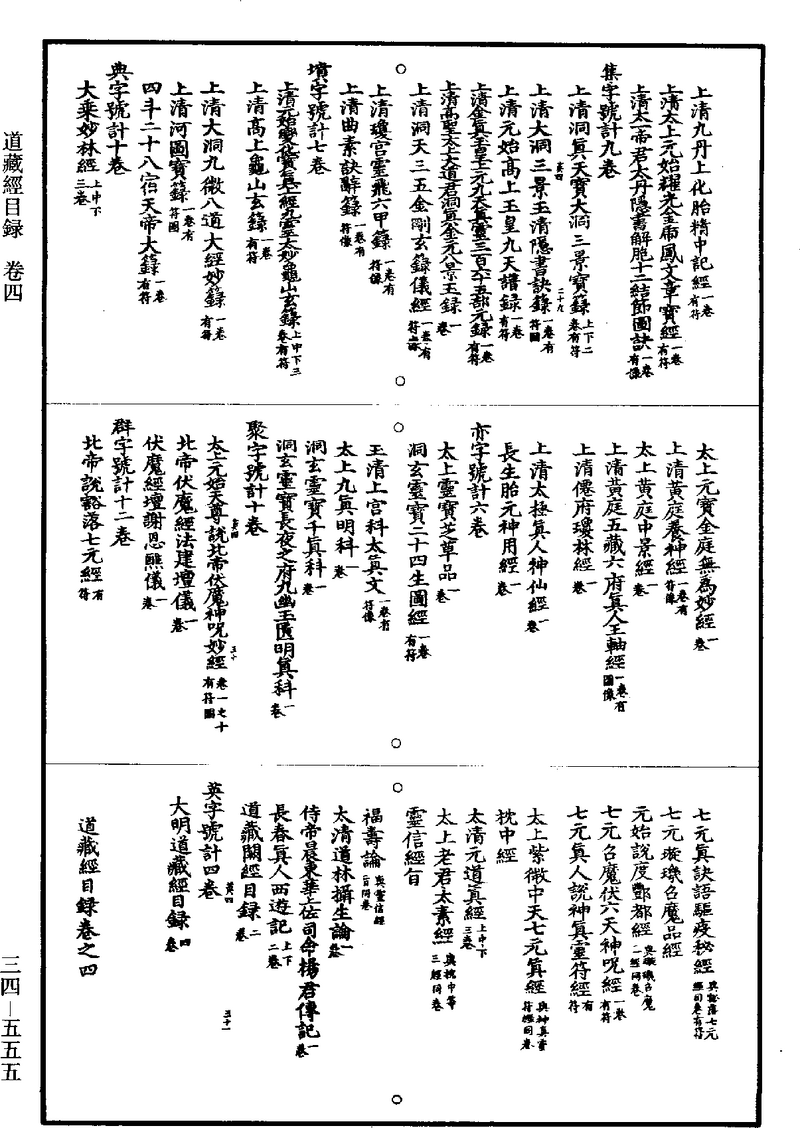 道藏經目録　卷四
三四—五五五
上清九丹上化胎精中記經一卷有符
上清太上元始耀光金虎鳳文章寶經一卷有符
上清太一帝君太丹隱書解胞十二結節圖訣一卷有像
集字號計九卷
上清洞真天寶大洞三景寶籙上下二卷有符
二十九
上清大洞三景玉清隱書訣籙一卷有符圖
上清元始高上玉皇九天譜録一卷有符
上清金真玉皇上元九天真靈三百六十五部元録一卷有符
上清高聖太上大道君洞真金元八景玉録一卷
上清洞天三五金剛玄籙儀經一卷有符
上清瓊宫靈飛六甲籙一卷有符像
上清曲素訣辭籙一卷有符像
墳字號計七卷
上清元始變化寶真上經九靈太妙龜山玄籙上中下三卷有符
上清高上龜山玄籙一卷有符
上清大洞九微八道大經妙籙一卷有符
上清河圖寶籙一卷有符圖
四斗二十八宿天帝大籙一卷有符
典字號計十卷
大乘妙林經上中下三卷
太上元寶金庭無為妙經一卷
上清黃庭養神經一卷有符像
太上黃庭中景經一卷
上清黃庭五藏六府真人玉軸經一卷有圖像
上清僊府瓊林經一卷
上清太極真人神仙經一卷
長生胎元神用經一卷
亦字號計六卷
太上靈寶芝草品一卷
洞玄靈寶二十四生圖經一卷有符
玉清上宫科太真文一卷有符像
太上九真明科一卷
洞玄靈寶千真科一卷
洞玄靈寶長夜之府九幽玉匱明真科一卷
聚字號計十卷
太上元始天尊說北帝伏魔神呪妙經卷一之十有符圖
五十
北帝伏魔經法建壇儀一卷
伏魔經壇謝恩醮儀一卷
群字號計十二卷
北帝說豁落七元經有符
七元真訣語驅疫秘經與豁落七元經同卷有符
七元璇璣召魔品經
元始說度酆都經與璇璣召魔一經同卷
七元召魔伏六天神呪經一卷有符
七元真人說神真靈符經有符
太上紫微中天七元真經與神真靈符經同卷
枕中經
太清元道真經上中下三卷
太上老君太素經與枕中等三經同卷
靈信經旨
福壽論與靈信經旨同卷
太清道林攝生論一卷
侍帝晨東華上佐司命楊君傳記一卷
長春真人西遊記上下二卷
道藏闕經目録二卷
英字號計四卷
五十一
大明道藏經目録四卷
道藏經目録卷之四